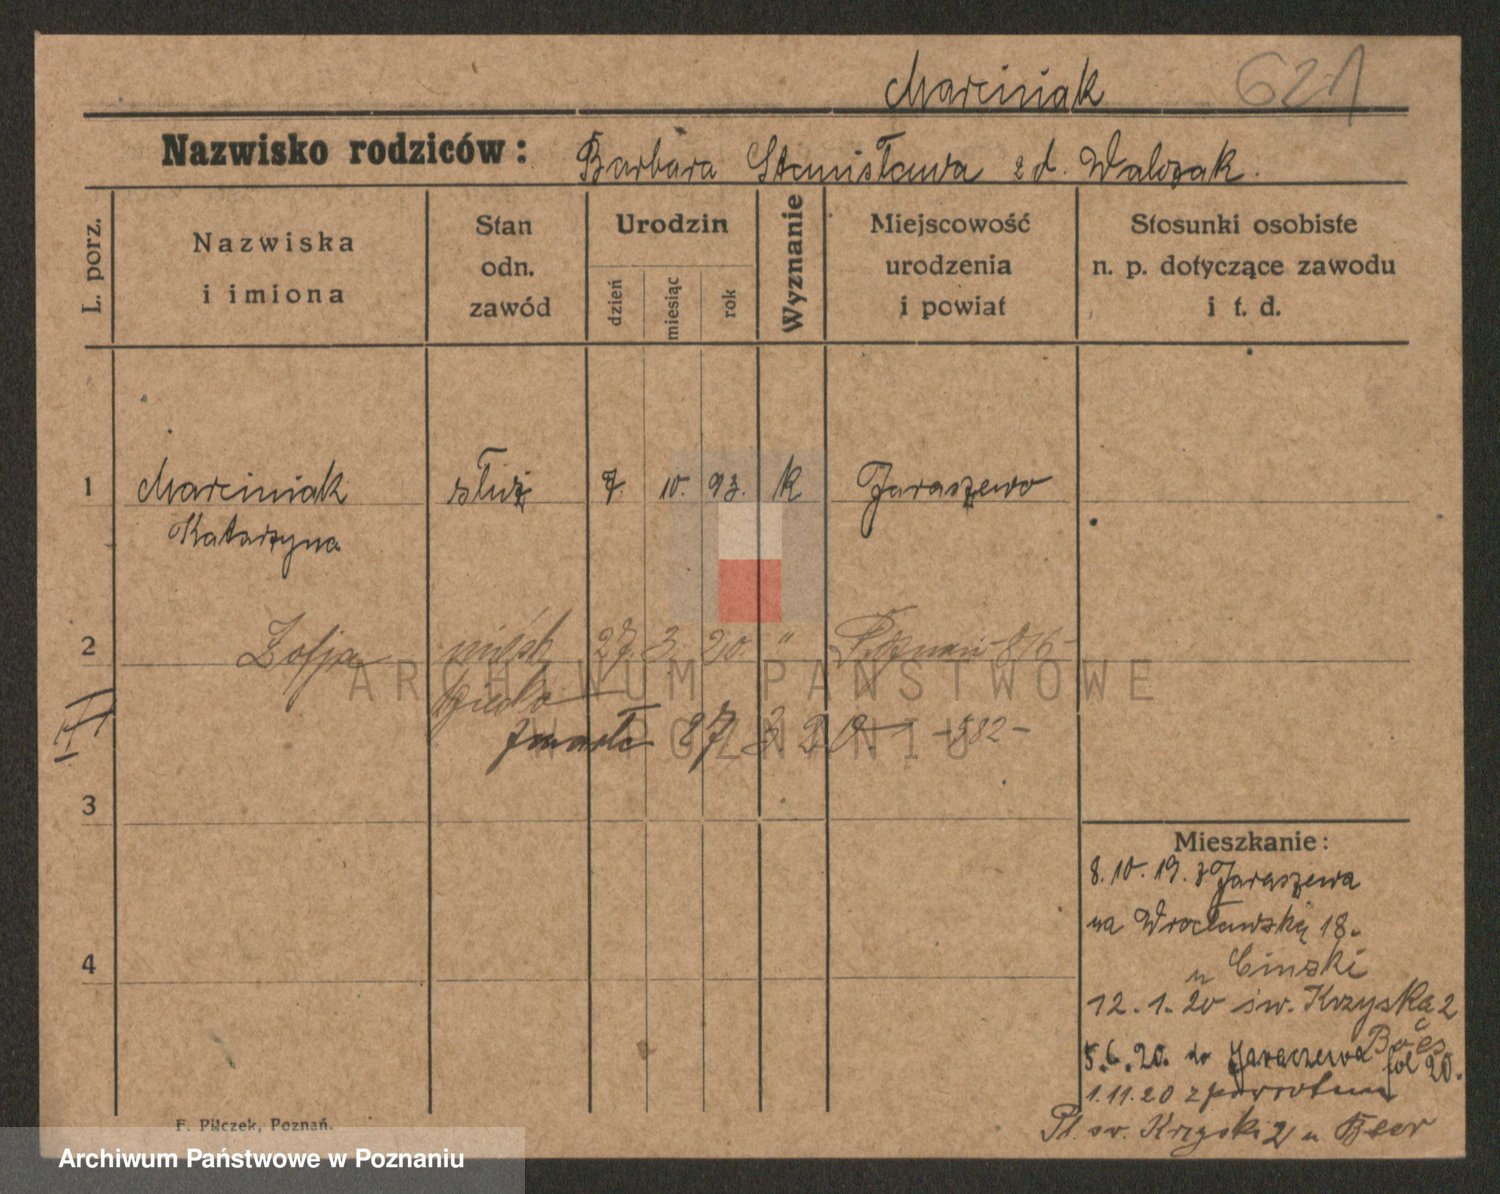 Marciniak 621
Nazwisko rodziców: Barbara Stanisława z d. Walczak.
L. porz.
Nazwiska
i imiona
Stan
odn.
zawód
Urodzin
dzień
miesiąc
rok
Wyznanie
Miejscowość
urodzenia
i powiat
Stosunki osobiste
n. p. dotyczące zawodu
i t. d.
1 Marciniak służ 7. 10. 93. k Jaraszewo
Katarzyna
2 Zofja nieśl. 27. 3. 20. " Poznań
dziecko
zmarło 27 3 20 -882-
3
4
Mieszkanie:
8.10.19. z Jaraszewa
na Wrocławską 18.
u Cinski
12.1.20 św. Krzyska 2
5.6.20. do Jaraczewa fol 20.
1.11.20 z powrotem
Pl. św. Krzyski 2 u Beer
F. Pilczek, Poznań.
ARCHIWUM PAŃSTWOWE
W POZNANIU
Archiwum Państwowe w Poznaniu